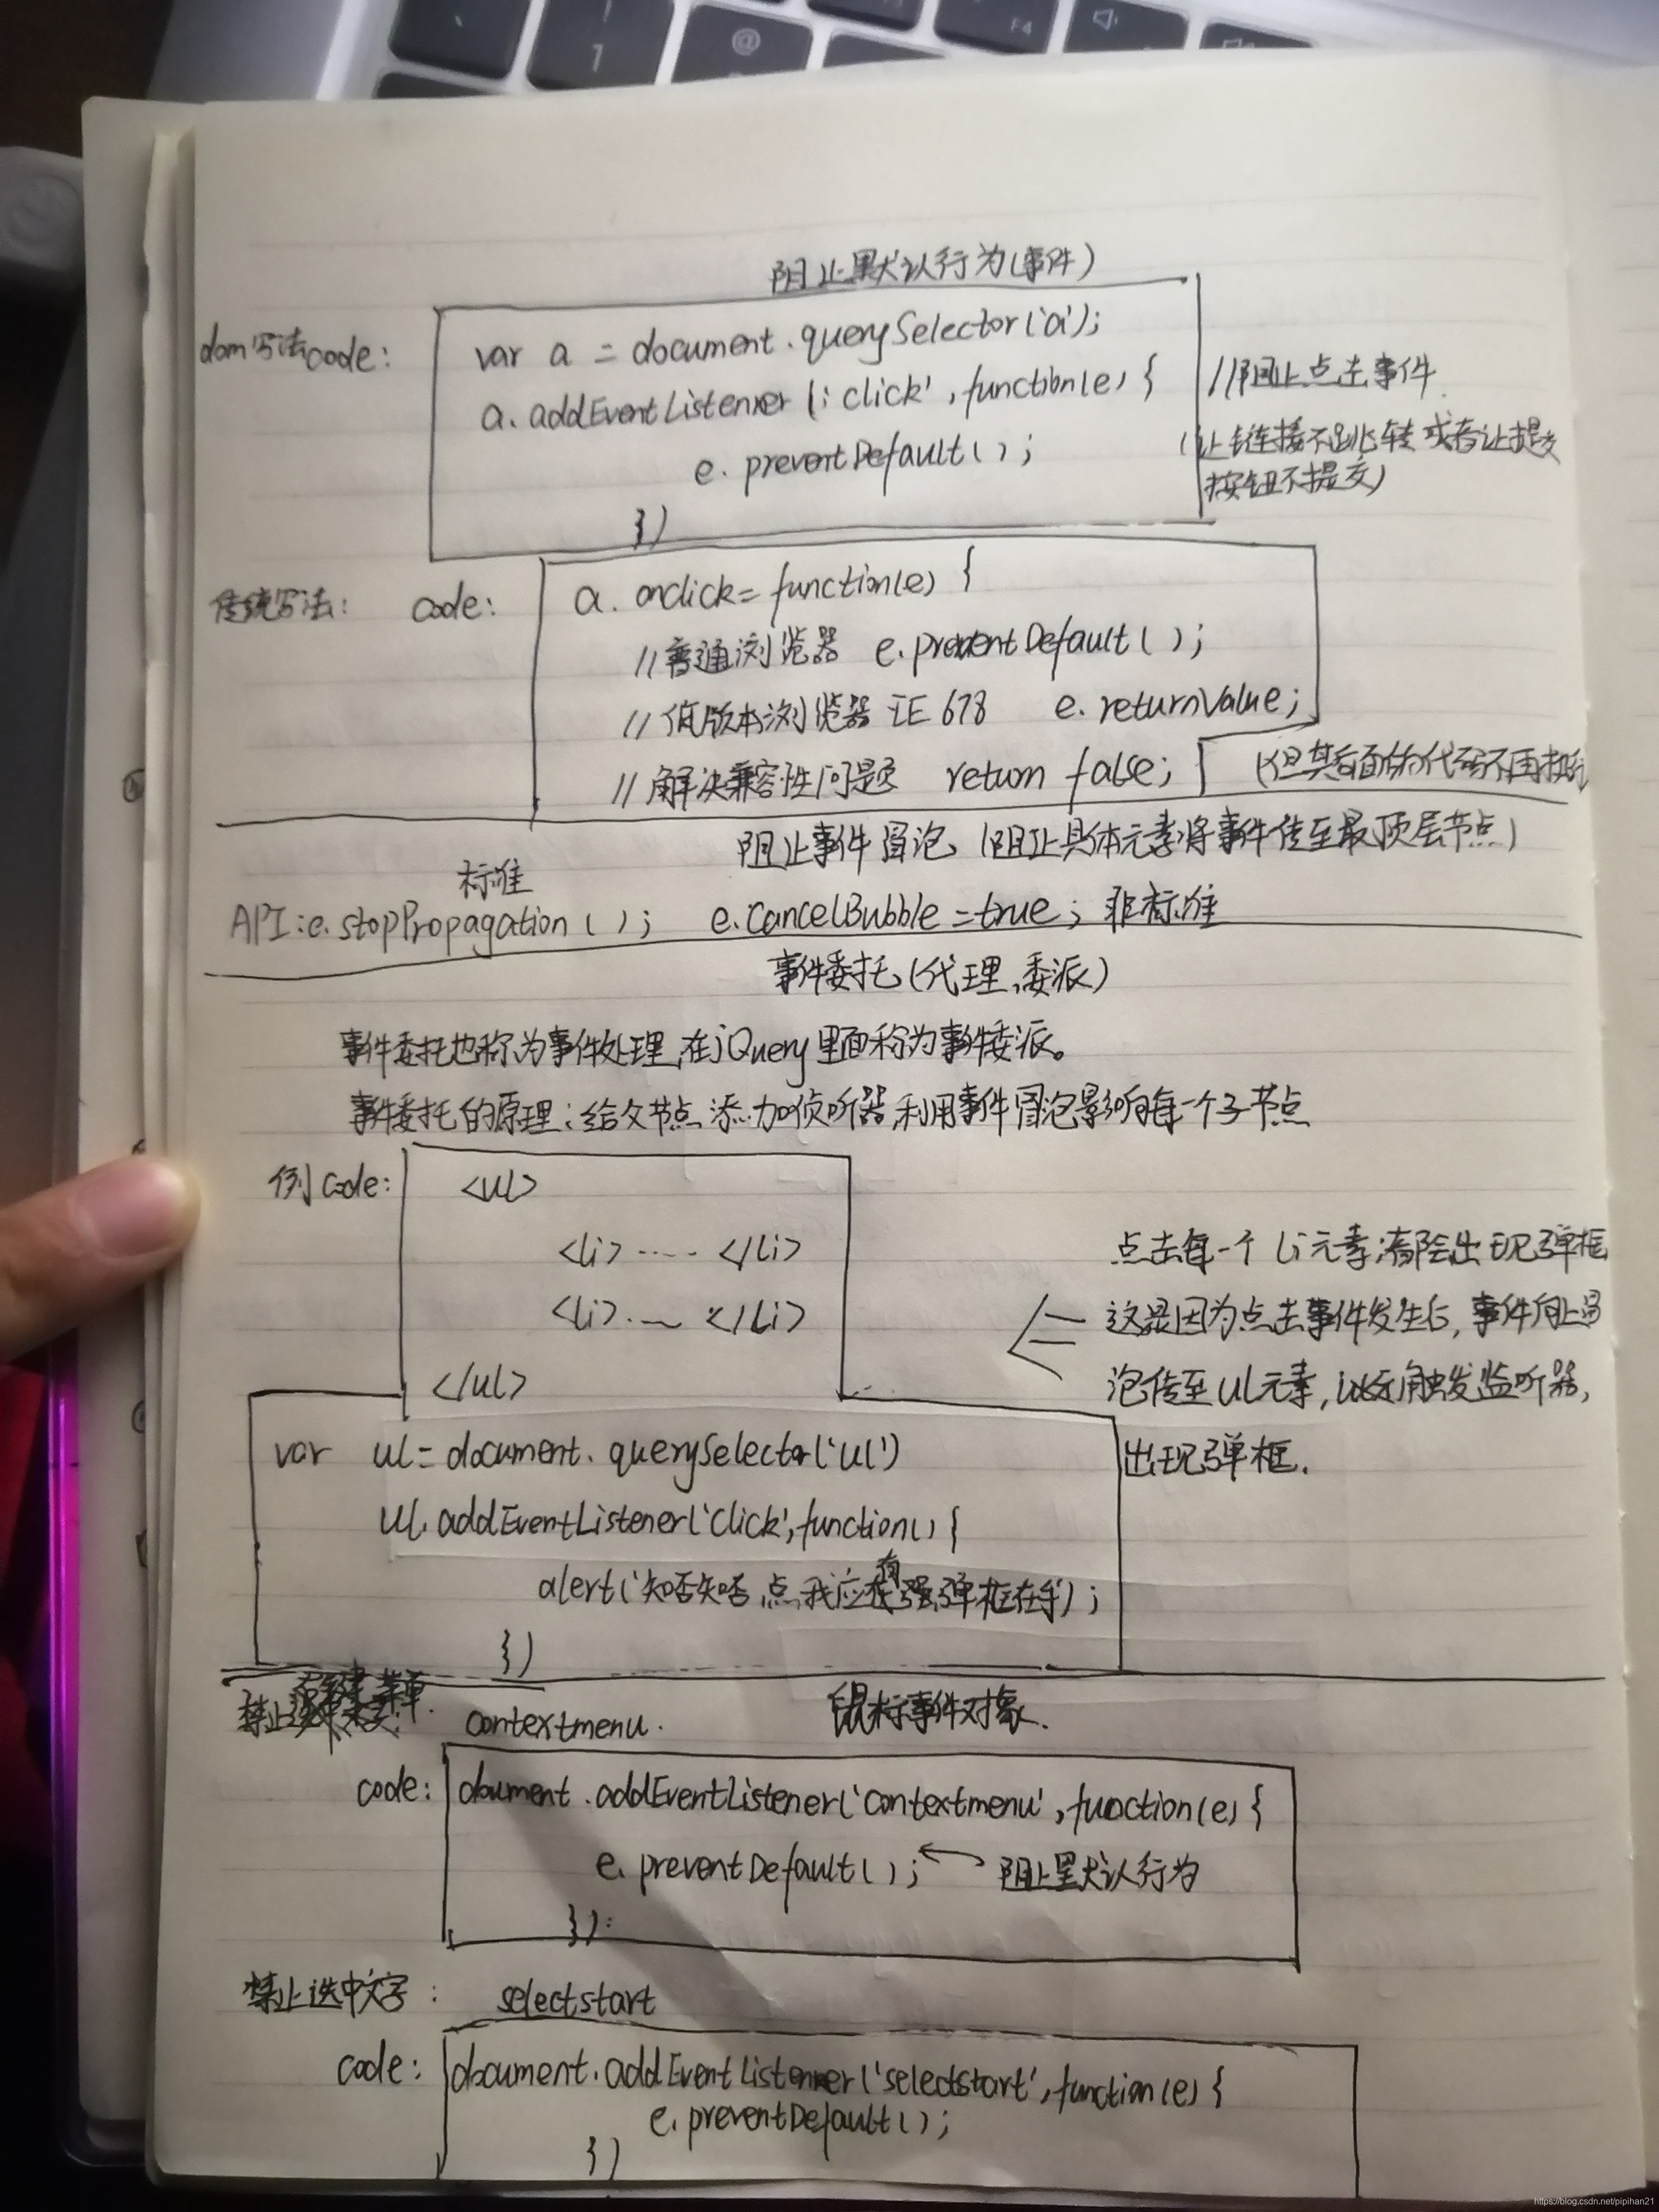 阻止默认行为(事件)
dom写法code:
var a = document.querySelector('a');
a.addEventListener(;click',function(e) {
e.preventDefault();
})
//阻止点击事件
(让链连接不跳转或者让提交
按钮不提交)
传统写法: code:
a.onclick= function(e) {
//普通浏览器 e.preventDefault();
//低版本浏览器 IE 678 e.returnValue;
//解决兼容性问题 return false;
(但其后面的代码不再执行
阻止事件冒泡(阻止具体元素将事件传至最顶层节点)
标准
API:e.stopPropagation(); e.cancelBubble=true; 非标准
事件委托(代理、委派)
事件委托也称为事件处理,在jQuery里面称为事件委派。
事件委托的原理:给父节点添加侦听器,利用事件冒泡影响每一个子节点
例code:
<ul>
<li>.....</li>
<li>.....</li>
</ul>
点击每一个li元素,都会出现弹框
这是因为点击事件发生后,事件向上冒
泡传至ul元素,以无触发监听器,
出现弹框.
var ul=document.querySelector('ul')
ul.addEventListener('click',function() {
alert('知否知否,点我应有弹框在手');
})
禁止右键菜单. contextmenu. 鼠标事件对象.
code: document.addEventListener('contextmenu',function(e) {
e.preventDefault(); 阻止默认行为
});
禁止选中文字: selectstart
code: document.addEventListener('selectstart',function(e) {
e.preventDefault();
})
https://blog.csdn.net/pipihan21